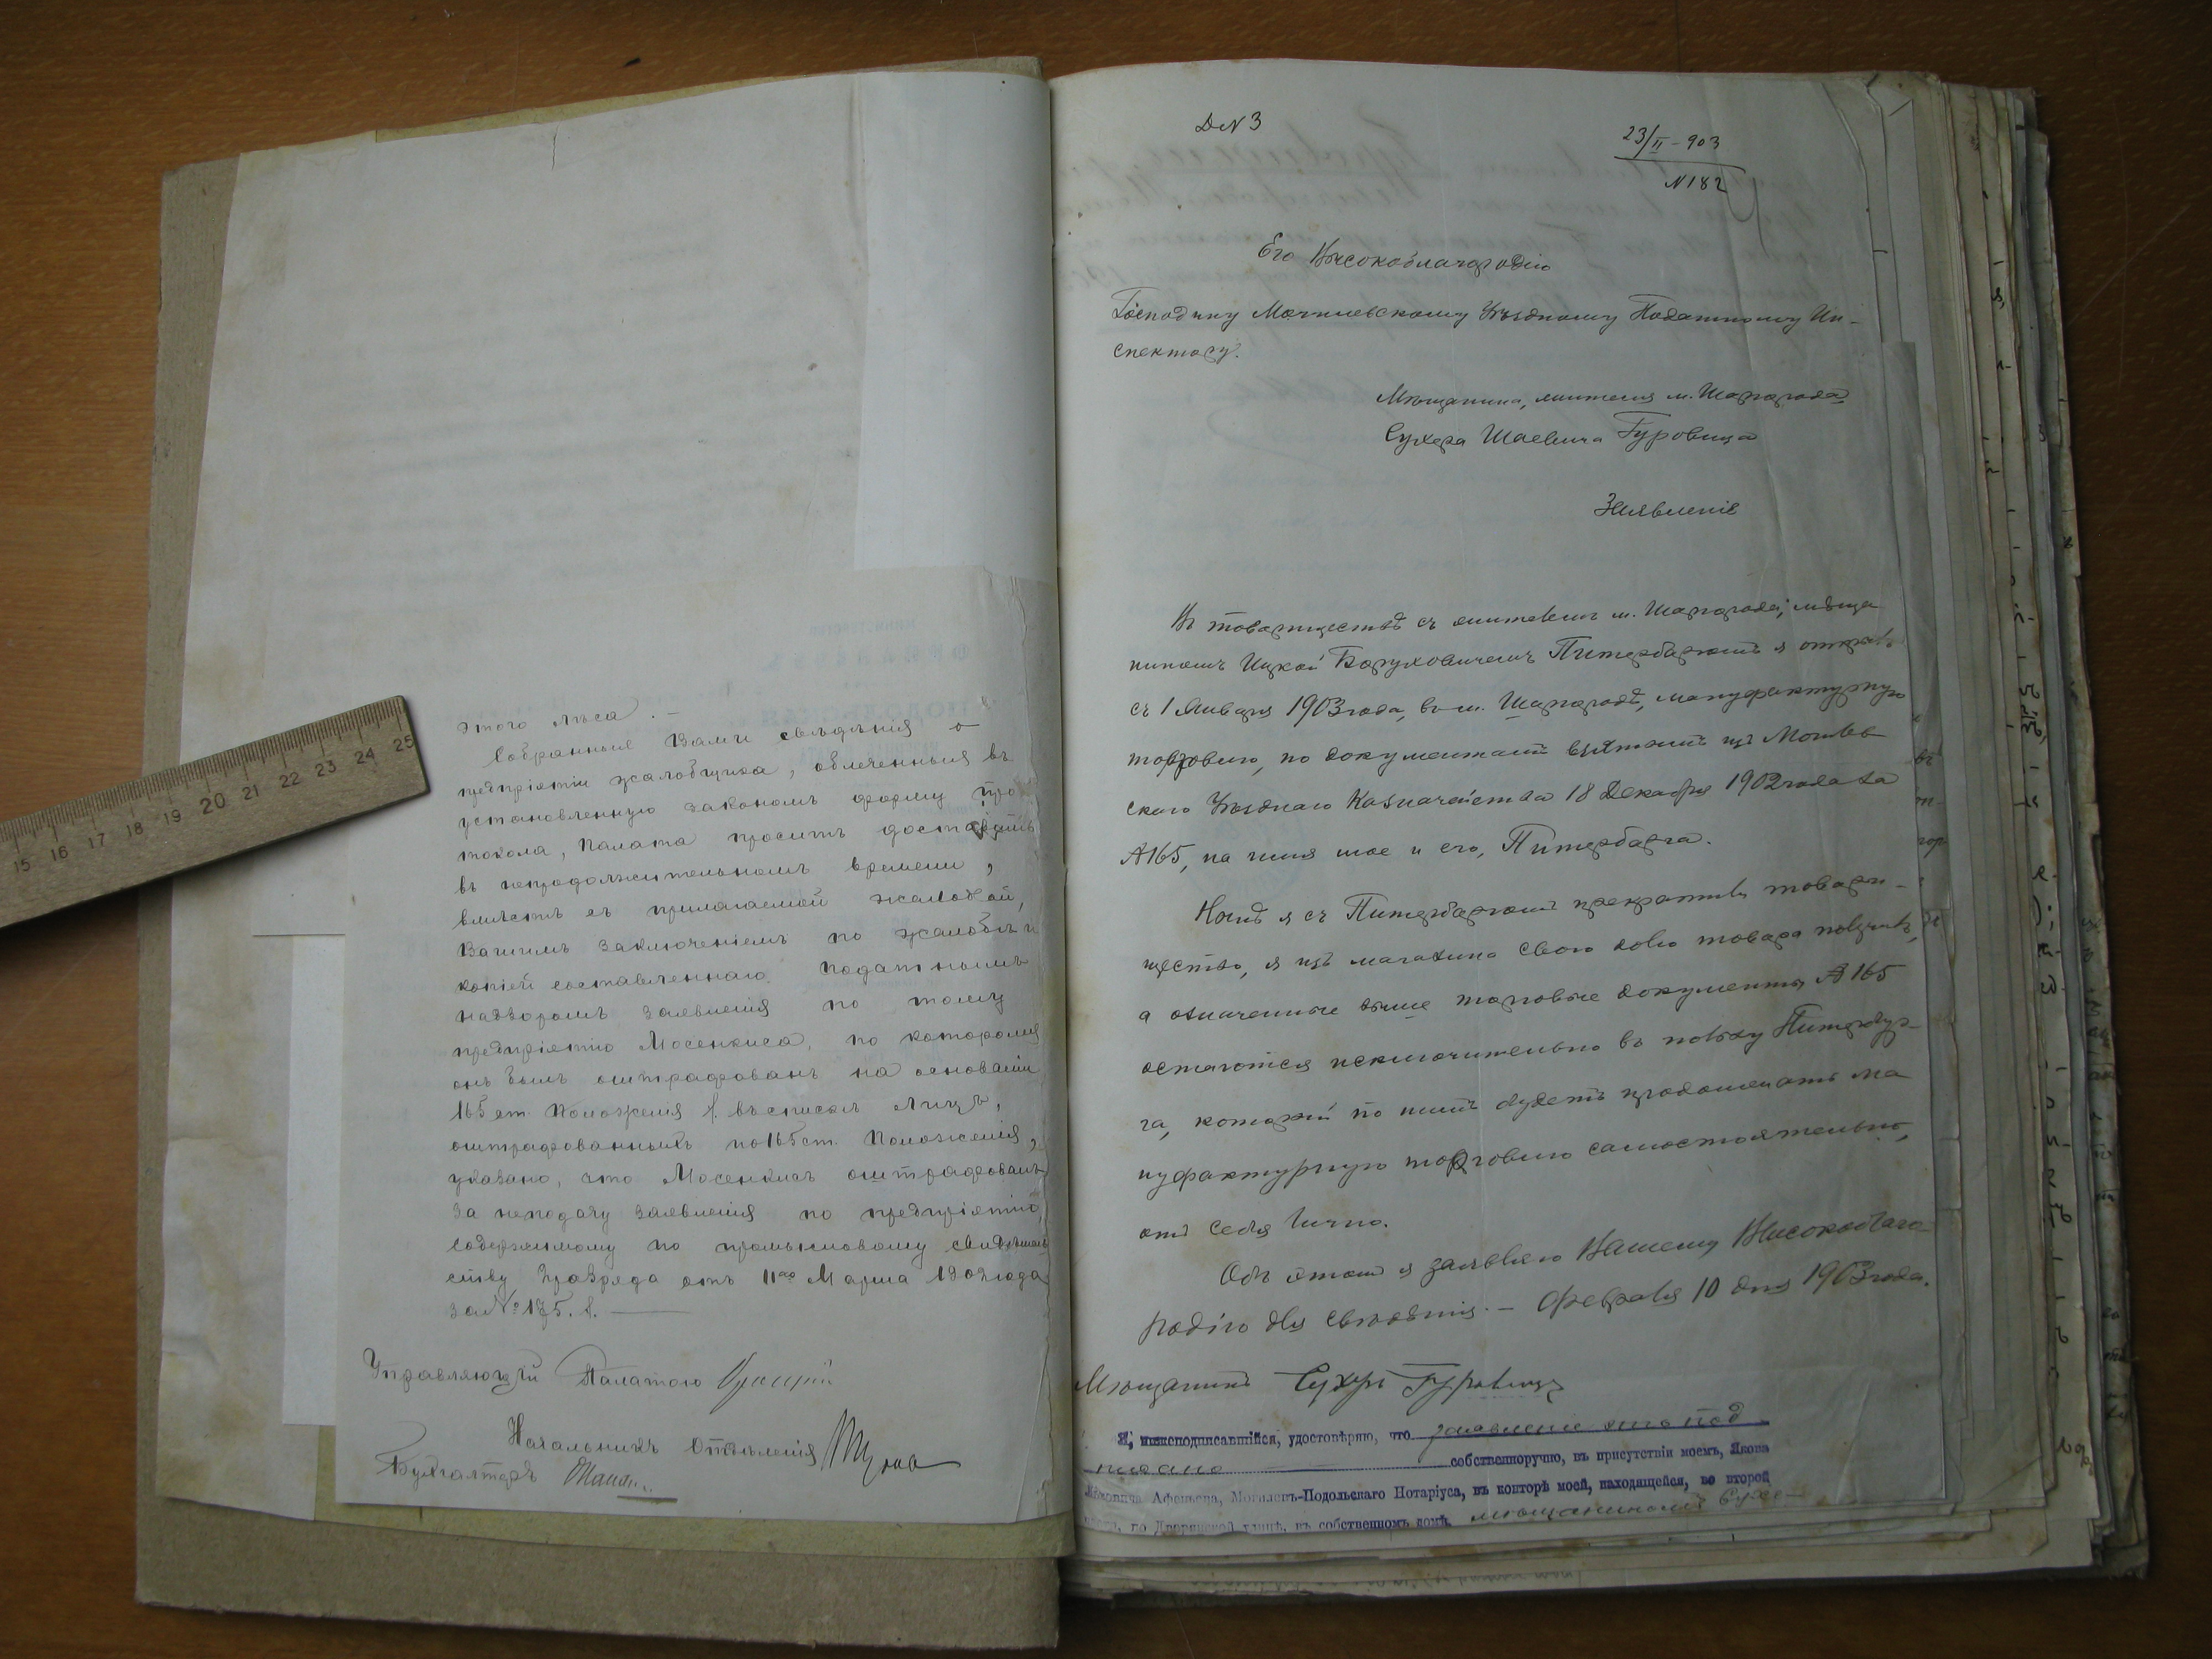 этого лѣса. —
Собранныя Вами свѣдѣнія о
предпріятіи жалобщика, облеченныя въ
установленную закономъ форму про
токола, Палата проситъ доставить
въ непродолжительномъ времени,
вмѣстѣ съ прилагаемой жалобой,
Вашимъ заключеніемъ по жалобѣ и
копіей составленнаго податнымъ
надзоромъ заявленія по тому
предпріятію Мосенкиса, по которому
онъ былъ оштрафованъ на основаніи
165 ст. Положенія /. въ спискѣ лицъ,
оштрафованныхъ по 165 ст. Положенія,
указано, что Мосенкисъ оштрафованъ
за неподачу заявленія по предпріятію,
содержимому по промысловому свидѣтель
ству разряда отъ 11го Марта 1902 года
за № 175. /. —
Управляющій Палатою
Начальникъ Отдѣленія
Бухгалтеръ
Д N 3
23/II - 903
N 182
Его Высокоблагородію
Господину Могилевскому Уѣздному Податному Ин-
спектору.
Мѣщанина, жителя м. Шаргорода
Сухера Шаевича Гуровица
Заявленіе
Въ товариществѣ съ жителемъ м. Шаргорода, мѣща
ниномъ Ицкой Боруховичемъ Питербаргомъ я открылъ
съ 1 Января 1903 года, въ м. Шаргородѣ, мануфактурную
торговлю, по документамъ взятымъ изъ Могилев
скаго Уѣзднаго Казначейства 18 Декабря 1902 года за
№ 165, на имя мое и его, Питербарга.
Нынѣ я съ Питербаргомъ прекратилъ товари-
щество, я изъ магазина свою долю товара получилъ,
а означенные выше торговые документы № 165
остаются исключительно въ пользу Питербар-
га, который по нимъ будетъ продолжать ма
нуфактурную торговлю самостоятельно,
отъ себя лично.
Объ этомъ я заявляю Вашему Высокоблаго-
родію для свѣдѣнія. — Февраля 10 дня 1903 года.
Мѣщанинъ Сухеръ Гуровицъ
Я, нижеподписавшійся, удостовѣряю, что заявленіе это под
писано собственноручно, въ присутствіи моемъ, Якова
Афеньева, Могилевъ-Подольскаго Нотаріуса, въ конторѣ моей, находящейся, во второй
части, по Дворянской улицѣ, въ собственномъ домѣ, мѣщаниномъ Сухе